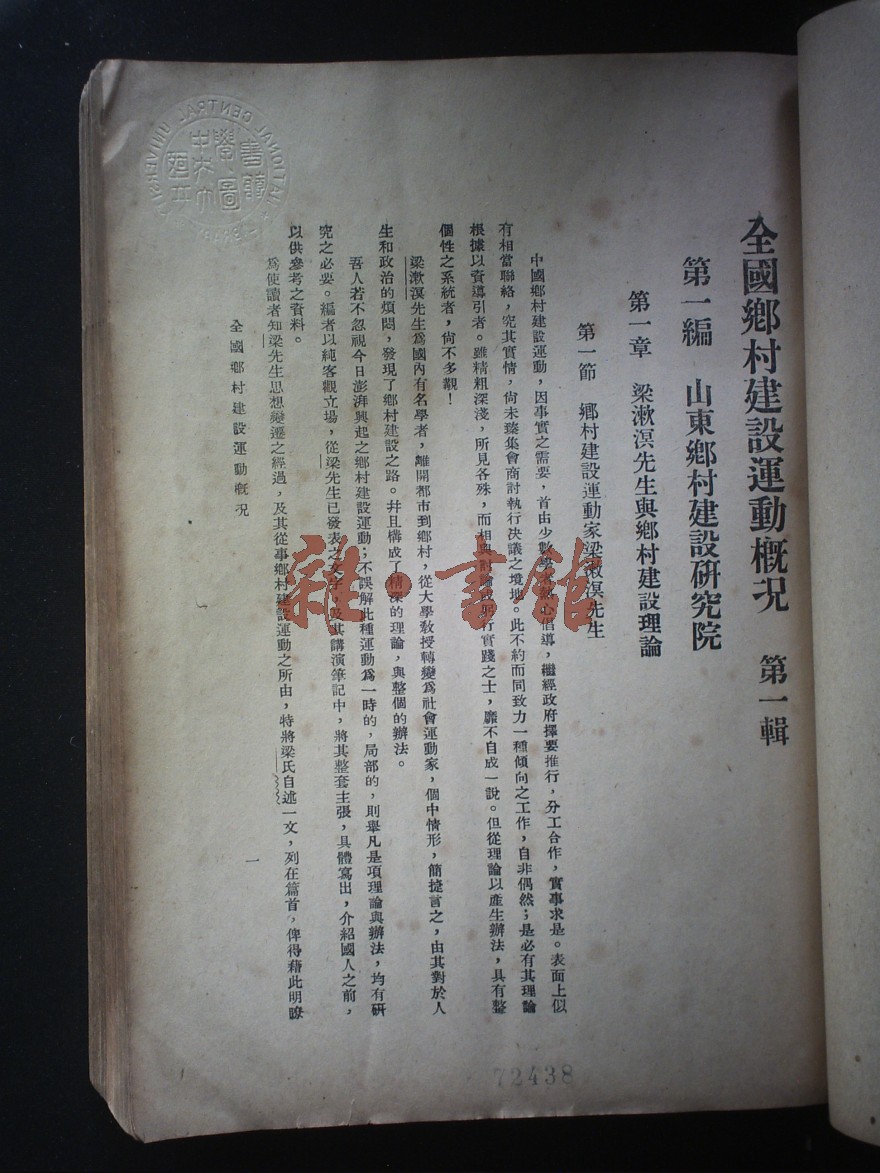 全國鄉村建設運動概況　第一輯
第一編　山東鄉村建設研究院
第一章　梁漱溟先生與鄉村建設理論
第一節　鄉村建設運動家梁漱溟先生
中國鄉村建設運動，因事實之需要，首由少數學者熱心倡導，繼經政府擇要推行，分工合作，實事求是。表面上似
有相當聯絡，究其實情，尙未臻集會商討執行決議之境地。此不約而同致力一種傾向之工作，自非偶然；是必有其理論
根據以資導引者。雖精粗深淺，所見各殊，而相與討論或躬行實踐之士，靡不自成一說。但從理論以產生辦法，具有整
個性之系統者，尙不多覯！
梁漱溟先生爲國內有名學者，離開都市到鄉村，從大學敎授轉變爲社會運動家，個中情形，簡捷言之，由其對於人
生和政治的煩悶，發現了鄉村建設之路。幷且構成了精深的理論，與整個的辦法。
吾人若不忽視今日澎湃興起之鄉村建設運動；不誤解此種運動爲一時的，局部的，則舉凡是項理論與辦法，均有研
究之必要。編者以純客觀立場，從梁先生已發表之文字，及其講演筆記中，將其整套主張，具體寫出，介紹國人之前，
以供參考之資料。
爲使讀者知梁先生思想變遷之經過，及其從事鄉村建設運動之所由，特將梁氏自述一文，列在篇首，俾得藉此明瞭
全國鄉村建設運動概况
一
72438
雜·書館
NATIONAL CENTRAL UNIVERSITY